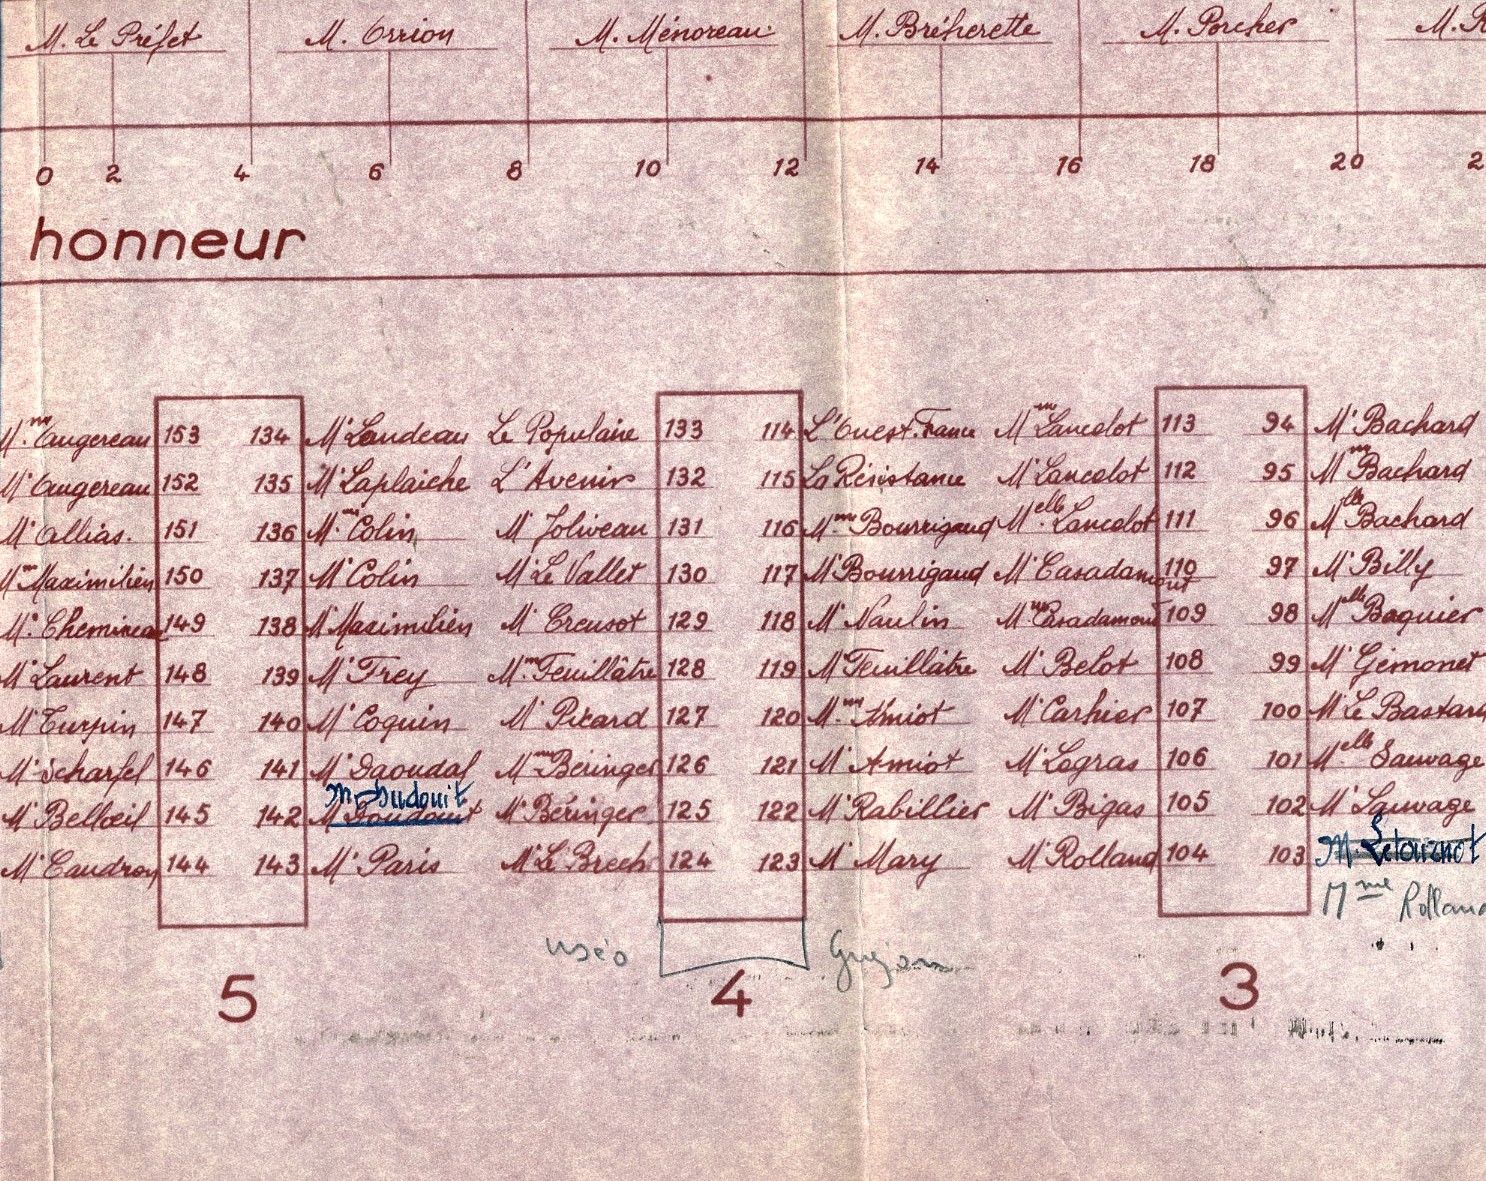 M. Le Préfet M. Orrion M. Ménoreau M. Bréherette M. Porcher M. R
0 2 4 6 8 10 12 14 16 18 20 2
honneur
Mme Augereau 153 134 Mr Landeau Le Populaire 133 114 L'Ouest-France Mme Lancelot 113 94 Mr Bachard
Mr Augereau 152 135 Mr Laplaiche L'Avenir 132 115 La Résistance Mr Lancelot 112 95 Mme Bachard
Mr Allias. 151 136 Mme Colin Mr Joliveau 131 116 Mme Bourrigaud Melle Lancelot 111 96 Mlle Bachard
Mme Maximilien 150 137 Mr Colin Mr Le Vallet 130 117 Mr Bourrigaud Mr Casadamont 110 97 Mr Billy
Mr Chemineau 149 138 Mr Maximilien Mr Creusot 129 118 Mr Naulin Mme Casadamont 109 98 Melle Baquier
Mr Laurent 148 139 Mr Frey Mme Feuillâtre 128 119 Mr Feuillâtre Mr Belot 108 99 Mr Gémonet
Mr Turpin 147 140 Mr Coquin Mr Picard 127 120 Mme Amiot Mr Carhier 107 100 Mr Le Bastard
Mr Scharfel 146 141 Mr Daoudal Mme Béringer 126 121 Mr Amiot Mr Legras 106 101 Melle Sauvage
M. Dudouit
Mr Belloeil 145 142 Mr Doudouit Mr Béringer 125 122 Mr Rabillier Mr Bigas 105 102 Mr Sauvage
Mr Caudron 144 143 Mr Paris Mr Le Brech 124 123 Mr Mary Mr Rolland 104 103 M Letournot
Mme Rolland
5 4 3